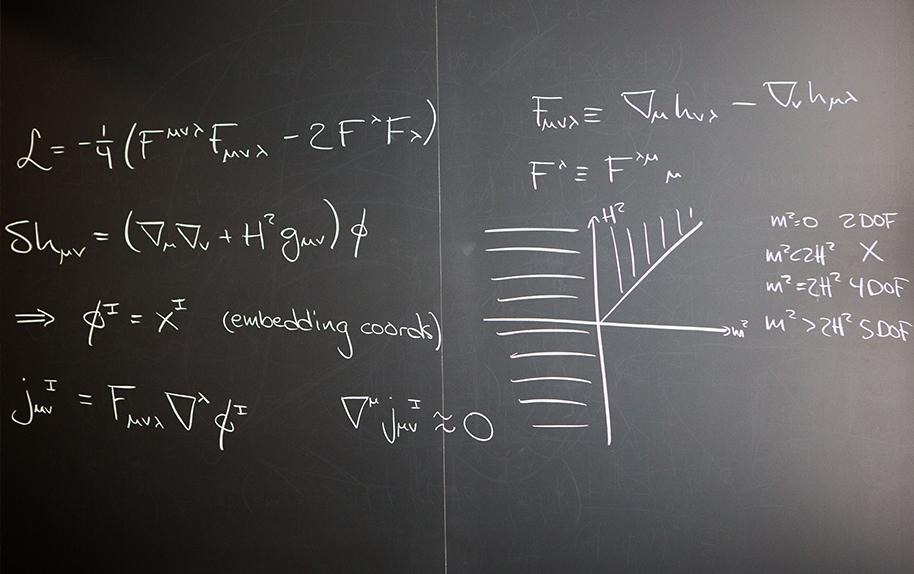 ℒ = -1/4 (F^{μνλ} F_{μνλ} - 2 F^λ F_λ)
δh_{μν} = (∇_μ ∇_ν + H² g_{μν}) ϕ
⇒ ϕ^I = X^I (embedding coords)
j_{μν}^I = F_{μνλ} ∇^λ ϕ^I ∇^μ j_{μν}^I ≈ 0
F_{μνλ} ≡ ∇_μ h_{νλ} - ∇_ν h_{μλ}
F^λ ≡ F^{λμ}_μ
H²
m²
m²=0 2DOF
m²<2H² X
m²=2H² 4DOF
m²>2H² 5DOF